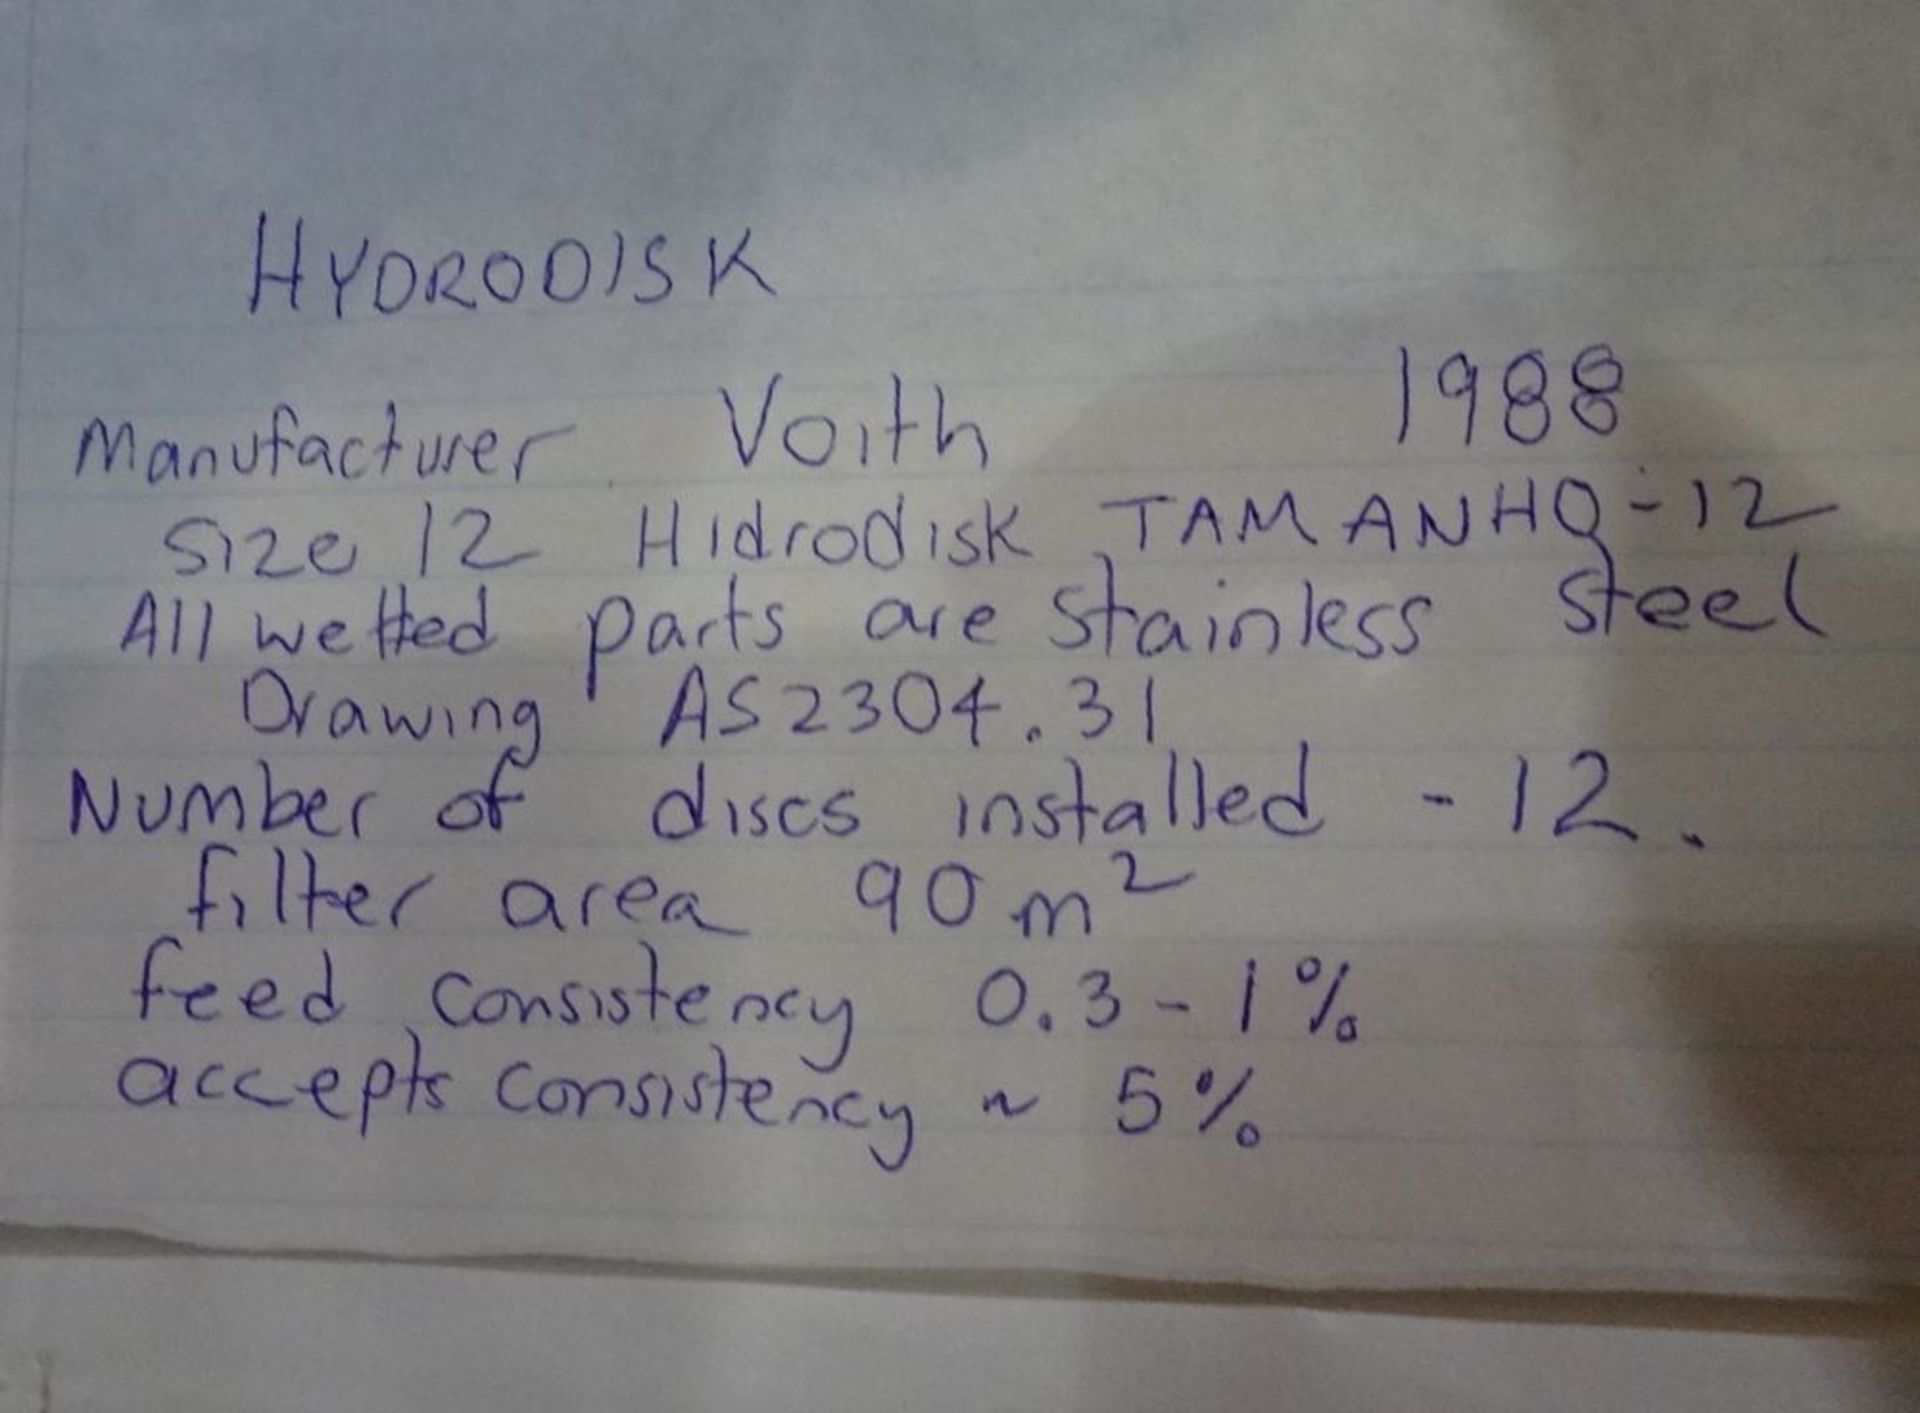 HYDRODISK
Manufacturer Voith 1988
Size 12 Hidrodisk TAMANHO-12
All wetted parts are stainless steel
Drawing AS2304.31
Number of discs installed - 12.
filter area 90 m²
feed consistency 0.3 - 1%
accepts consistency ~ 5%